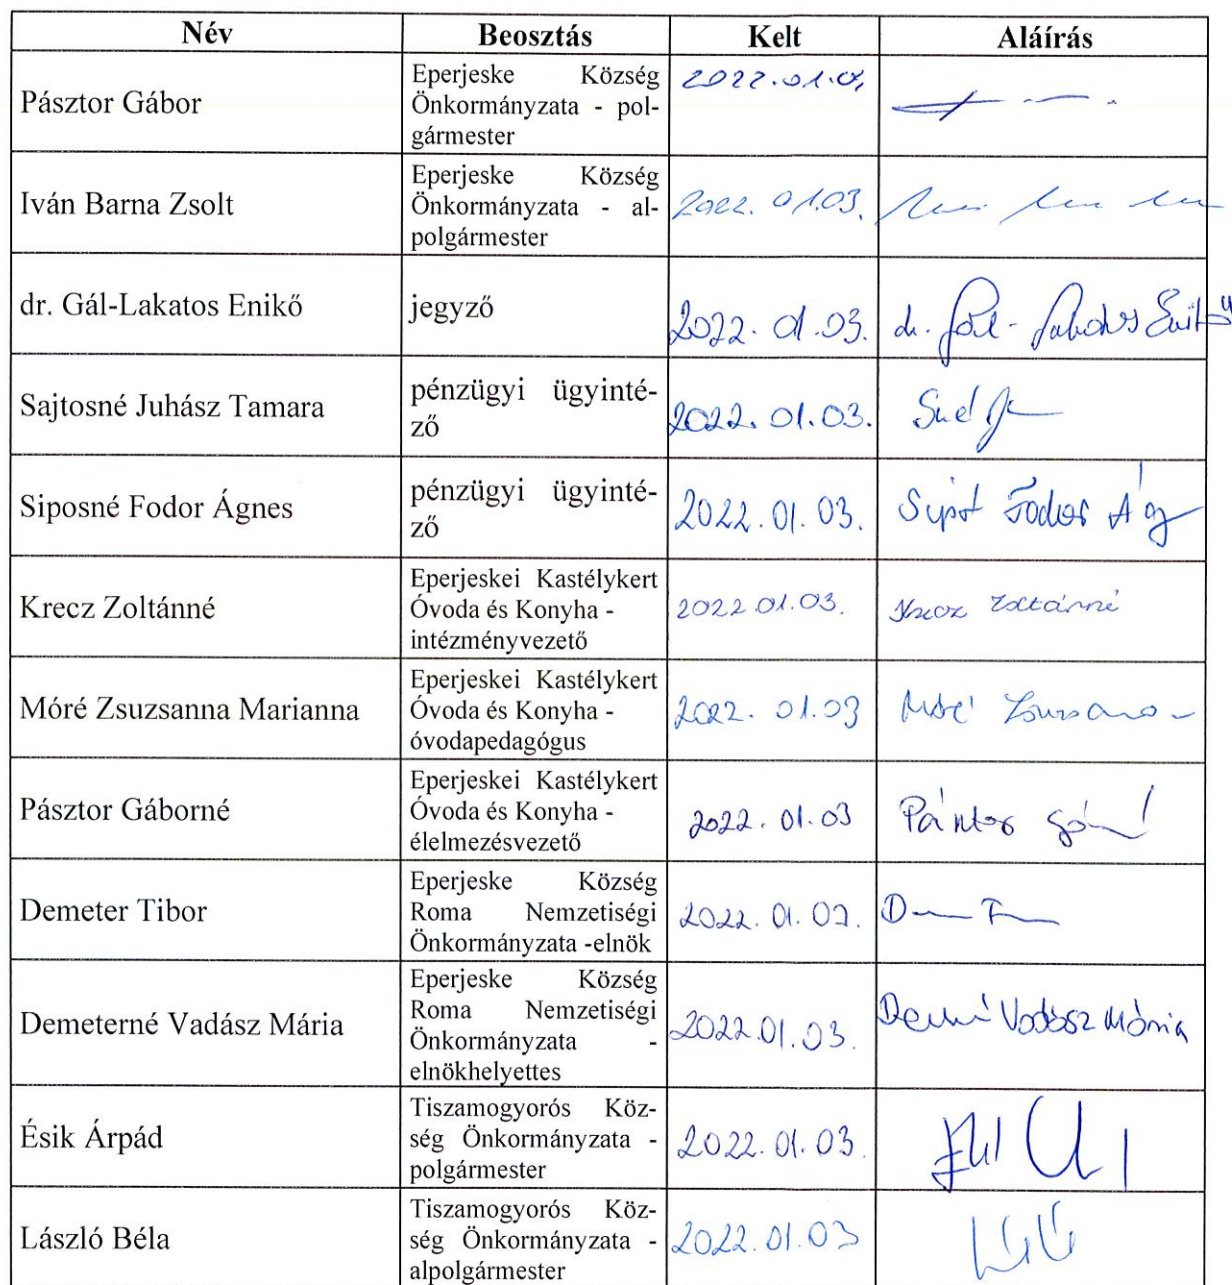 Név Beosztás Kelt Aláírás
Pásztor Gábor
Eperjeske Község
Önkormányzata - pol-
gármester
Iván Barna Zsolt
Eperjeske Község
Önkormányzata - al-
polgármester
2022. 01.03.
dr. Gál-Lakatos Enikő
jegyző
2022. 01.03.
dr. Gál-Lakatos Enikő
Sajtosné Juhász Tamara
pénzügyi ügyinté-
ző
2022. 01.03.
Siposné Fodor Ágnes
pénzügyi ügyinté-
ző
2022.01.03.
Fodor Ág
Krecz Zoltánné
Eperjeskei Kastélykert
Óvoda és Konyha -
intézményvezető
2022.01.03.
Krecz Zoltánné
Móré Zsuzsanna Marianna
Eperjeskei Kastélykert
Óvoda és Konyha -
óvodapedagógus
2022. 01.03
Móré
Pásztor Gáborné
Eperjeskei Kastélykert
Óvoda és Konyha -
élelmezésvezető
2022. 01.03
Pásztor
Demeter Tibor
Eperjeske Község
Roma Nemzetiségi
Önkormányzata -elnök
2022. 01.03.
Demeterné Vadász Mária
Eperjeske Község
Roma Nemzetiségi
Önkormányzata -
elnökhelyettes
2022.01.03.
Vadász Mária
Ésik Árpád
Tiszamogyorós Köz-
ség Önkormányzata -
polgármester
2022.01.03.
László Béla
Tiszamogyorós Köz-
ség Önkormányzata -
alpolgármester
2022.01.03